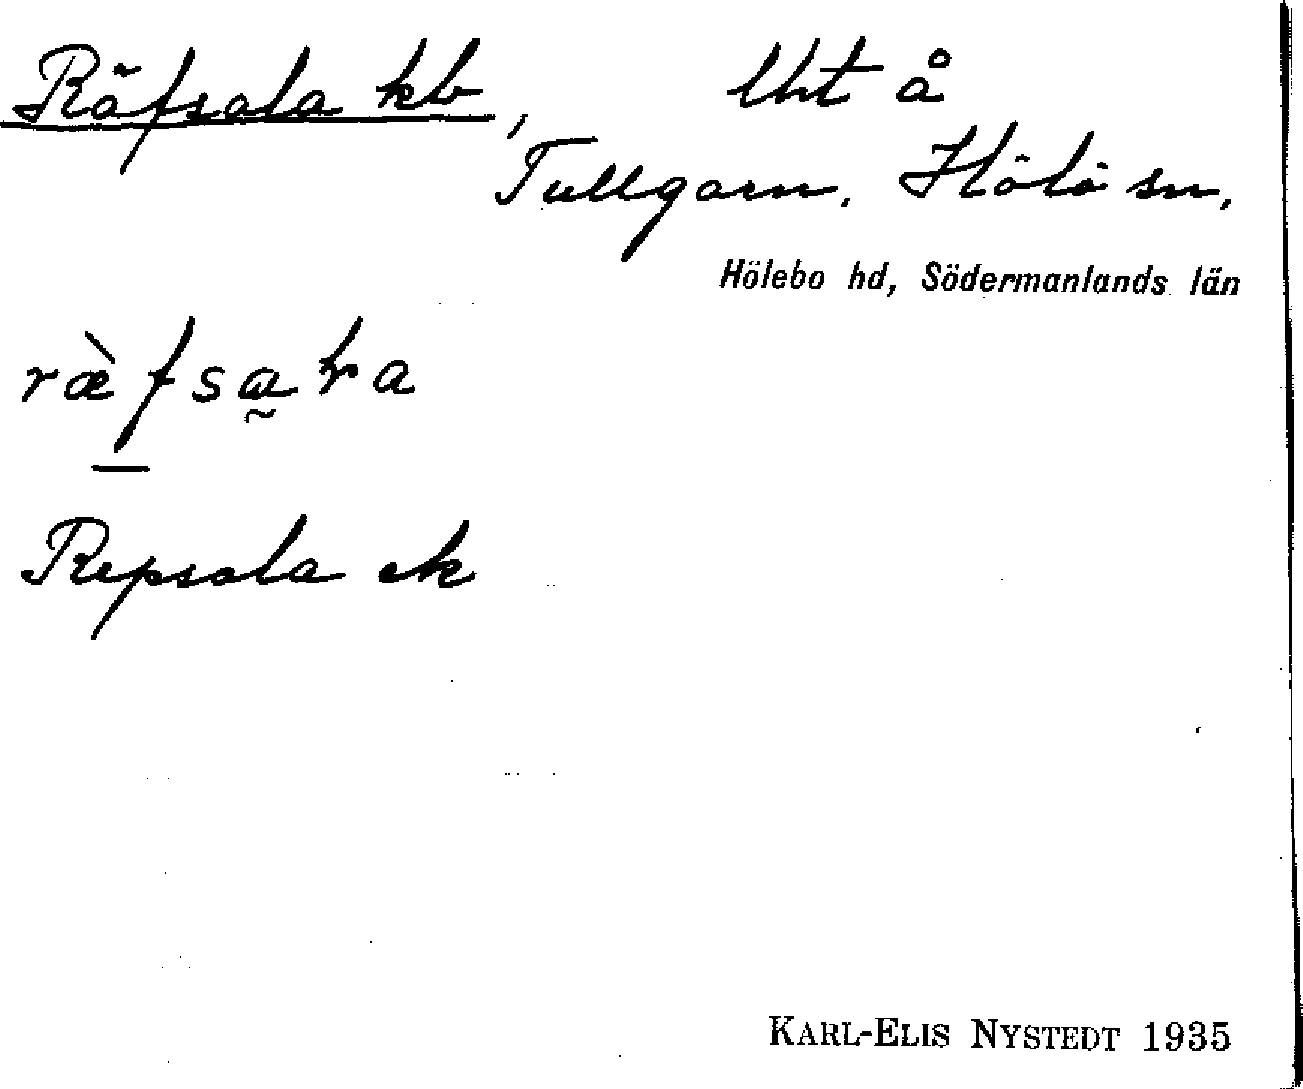 Räfsala kb, Uht å
Tullgarn, Hölö sn,
Hölebo hd, Södermanlands län
ræ̀fsa̰ła
Repsala ek
KARL-ELIS NYSTEDT 1935